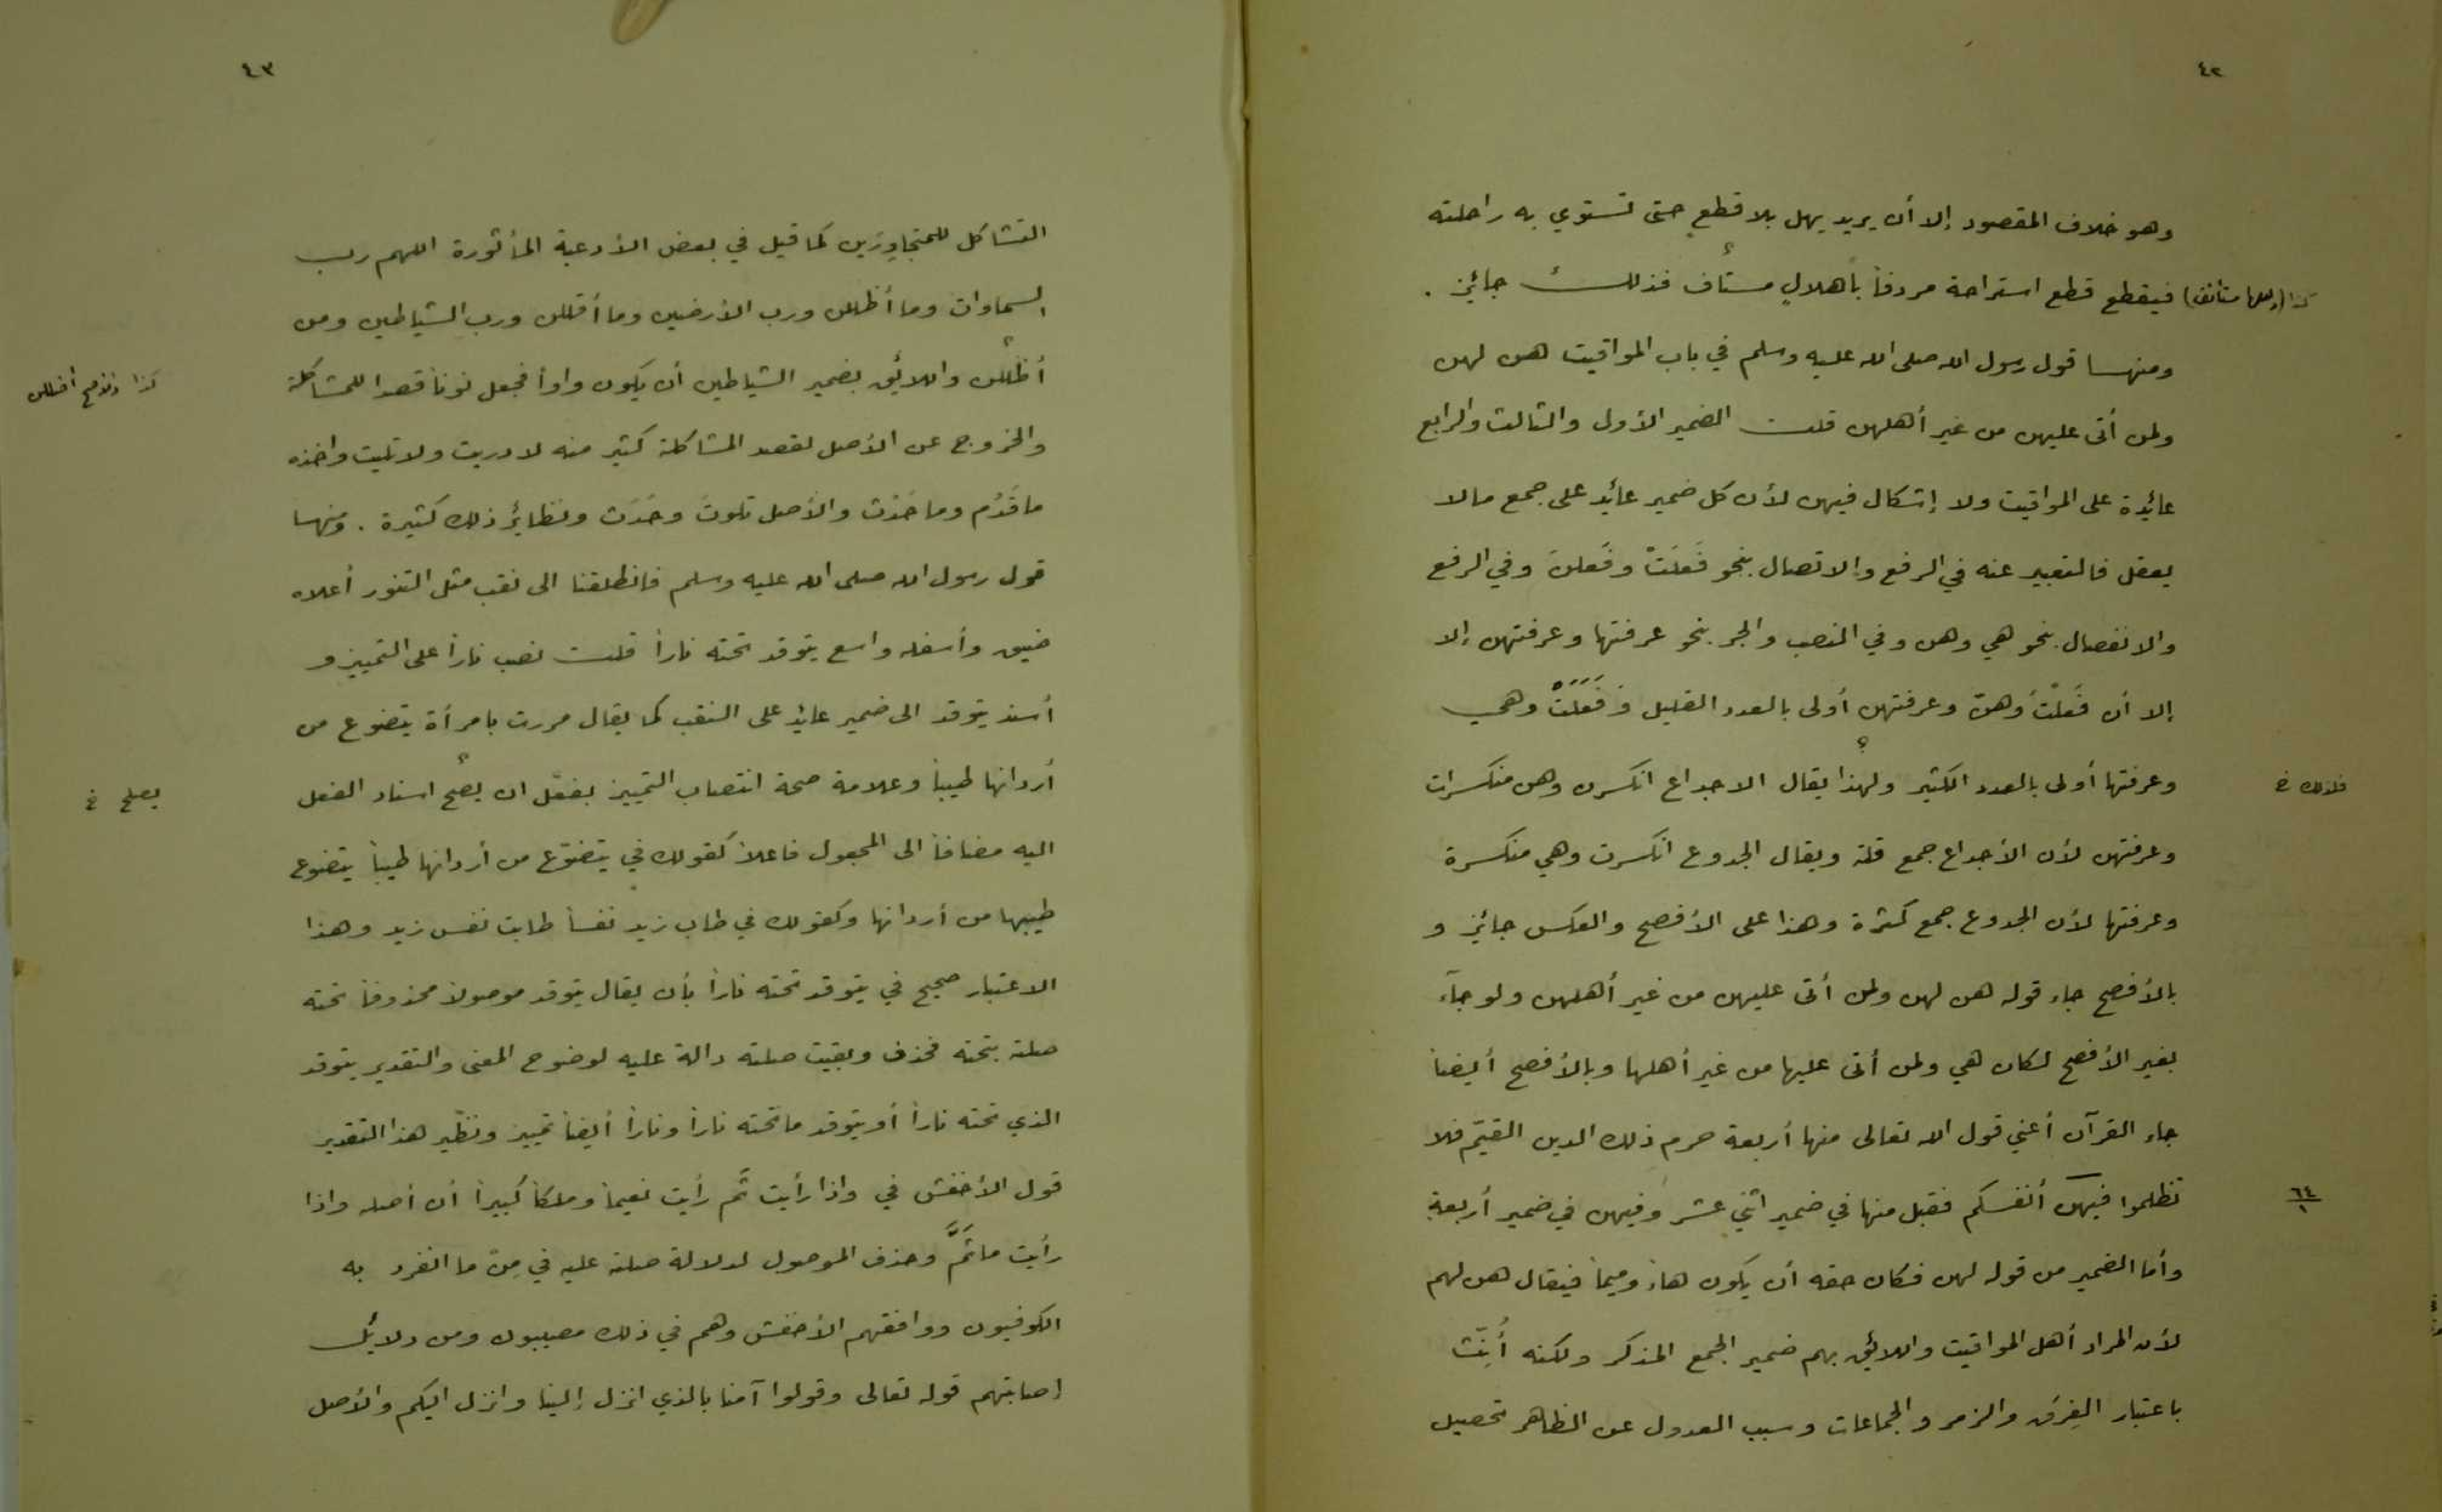 ٤٢
وهو خلاف المقصود إلا أن يريد يهل بلا قطع حتى تستوي به راحلته
كذا (ولعلها مستأنف) فيقطع قطع استراحة مردفاً بأهلالٍ مستأف فذلك جائز .
ومنها قول رسول الله صلى الله عليه وسلم في باب المواقيت هن لهن
ولمن أتى عليهن من غير أهلهن قلت الضمير الأول والثالث والرابع
عائدة على المواقيت ولا إشكال فيهن لأن كل ضمير عائد على جمع مالا
يعقل فالتعبير عنه في الرفع والاتصال بنحو فَعَلَتْ وفَعَلنَ وفي الرفع
والانفصال بنحو هي وهن وفي النصب والجر بنحو عرفتها وعرفتهن إلا
إلا أن فَعَلْنَ وهنّ وعرفتهن أولى بالعدد القليل وَفَعَلَتْ وهي
وعرفتها أولى بالعدد الكثير ولهذا يقال الاجداع انكسرن وهن منكسرات
فلذلك خ
وعرفتهن لأن الأجداع جمع قلة ويقال الجدوع انكسرت وهي منكسرة
وعرفتها لأن الجدوع جمع كثرة وهذا على الأفصح والعكس جائز و
بالأفصح جاء قوله هن لهن ولمن أتى عليهن من غير أهلهن ولو جآء
بغير الأفصح لكان هي ولمن أتى عليها من غير أهلها وبالأفصح أيضاً
جاء القرآن أعني قول الله تعالى منها أربعة حرم ذلك الدين القيّم فلا
تظلموا فيهن أنفسكم فقيل منها في ضمير اثني عشر وفيهن في ضمير أربعة
٦٤
١
وأما الضمير من قوله لهن فكان حقه أن يكون هاءً وميماً فيقال هن لهم
لأن المراد أهل المواقيت واللائق بهم ضمير الجمع المذكر ولكنه أُنِّثَ
باعتبار الفِرَق والزمر والجماعات وسبب العدول عن الظاهر تحصيل
٤٣
التشاكل للمتجاوِرَين كما قيل في بعض الأدعية المأثورة اللهم رب
السماوات وما أظللن ورب الأرضين وما أقللن ورب الشياطين ومن
أظللن واللائق بضمير الشياطين أن يكون واواً فجعل نوناً قصداً للمشاكلة
والخروج عن الأصل لقصد المشاكلة كثير منه لا دريت ولا تليت وأخذه
ما قَدُم وما حَدُث والأصل تلوتَ وحَدَث ونظائر ذلك كثيرة . ومنها
قول رسول الله صلى الله عليه وسلم فانطلقنا الى نقب مثل التنور أعلاه
ضيق وأسفله واسع يتوقد تحته ناراً قلت نصب ناراً على التمييز و
أسند يتوقد الى ضمير عائد على النقب كما يقال مررت بامرأة يتضوع من
أردانها طيباً وعلامة صحة انتصاب التمييز بفعل ان يصح اسناد الفعل
يصلح خ
اليه مضافاً الى المجعول فاعلاً كقولك في يتضوّع من أردانها طيباً يتضوع
طيبها من أردانها وكقولك في طاب زيد نفساً طابت نفس زيد وهذا
الاعتبار صحيح في يتوقد تحته ناراً بأن يقال يتوقد موصولاً محذوفاً تحته
صلته بتحته فحذف وبقيت صلته دالة عليه لوضوح المعنى والتقدير يتوقد
الذي تحته ناراً أو يتوقد ما تحته ناراً وناراً أيضاً تمييز ونظير هذا التقدير
قول الأخفش في واذا رأيت ثم رأيت نعيماً وملكاً كبيراً أن أصله واذا
رأيت ما ثَمَّ وحذف الموصول لدلالة صلته عليه في مِن ما انفرد به
الكوفيون ووافقهم الأخفش وهم في ذلك مصيبون ومن دلائل
إصابتهم قوله تعالى وقولوا آمنا بالذي انزل إلينا وانزل اليكم والأصل